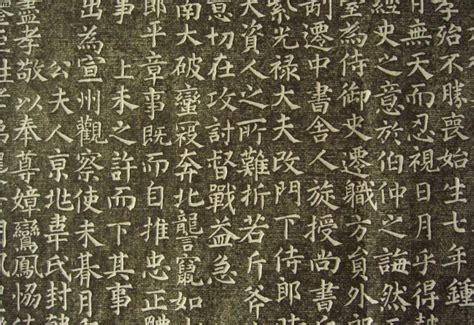 殆不勝喪始生七年鍾
月無天而忍視日月乎得
經史之意於伯仲之誨然
室為侍御史遷職方員外
制遷中書舍人旋授尚書
紫光禄大夫改門下侍郎
大資人之所難折若斤斧
意切在攻討督戰益急
南大破蠻寇奔北讋竄如
郎平章事既而自推忠正
上未之許而下其事
出為宣州觀察使未朞月
公夫人京兆韋氏封
盡孝敬以奉尊嫜鸞鳳恊